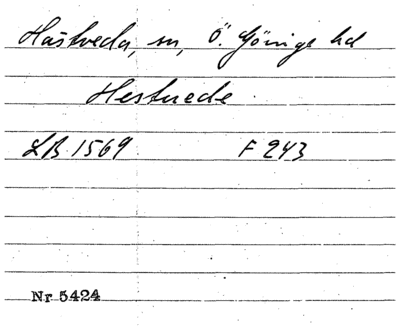 Hästveda, sn, Ö. Göinge hd
Hestuede
LB 1569 F 243
Nr 5424